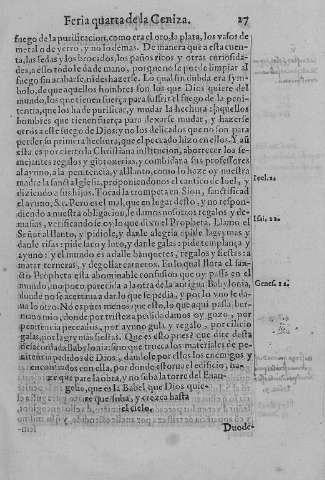 Feria quarta de la Ceniza. 27
fuego de la purificacion, como era el oro, la plata, los vasos de
metal o de yerro, y no los demas. De manera q̃ a esta cuen-
ta, las sedas y los brocados, los paños ricos y otras curiosida-
des, a esso todo le da de mano, porque no le puede limpiar al
fuego sin acabarse, ni deshazerse. Lo qual sin dubda era sym-
bolo, de que aquellos hombres son los que Dios quiere del
mundo, los que tienen fuerça para suffrir el fuego de la peni-
tencia, que los ha de purificar, y mudar la hechura: aquellos
hombres que tienen fuerça para dexarse mudar, y hazerse
otros a este fuego de Dios: y no los delicados que no son para
perder su primera hechura, que el peccado hizo en ellos. Y assi
ella es por cierto la Christiana institucion, aborrecer los se-
mejantes regalos y glotonerias, y combidar a sus professores
al ayuno, a la penitencia, y al llanto, como lo haze oy nuestra
madre la sancta Iglesia, proponiendonos el cantico de Ioel, y
diziendo a sus hijos. Tocad la trompeta en Sion, sanctificad
el ayuno, &c. Pero es el mal, que en lugar desto, y no respon-
diendo a nuestra obligacion, le damos nosotros regalos y de-
masias, verificandose oy lo que dixo el Propheta. Llamo el
Señor al llanto, y pidiole, y danle alegria: pide lagrymas y
danle risas: pide luto y loto, y danle galas: pide templança y
ayuno: y el mundo es a dalle banquetes, regalos y fiestas: a
matar terneras, y degollar carneros. En lo qual llora el san-
cto Propheta esta abominable confusion que oy passa en el
mundo, no poco parecida a la otra de la antigua Babylonia,
donde no se acertaua a dar lo que se pedia, y por lo vno se da-
ua lo otro. No es pues menos que esso, lo que aqui passa, her-
mano mio, donde por tristeza pedida damos oy gozo, por
penitencia peccados, por ayuno gula, y regalo, por cilicio
galas, por lagrymas fiestas. Que es esto pues? que dire desta
desacordada Babylonia: sino que trueca los materiales de pe-
nitencia pedidos de Dios, dandole por ellos los enemigos y
encontrados con ella, por donde estorua el edificio, ha-
ze que pare la obra, y no suba la torre del Euan-
gelio, que es la Babel que Dios quie-
re que suba, y crezca hasta
el cielo.
Duode-
Ioel. 2.
Isai. 22.
Genes. 11.